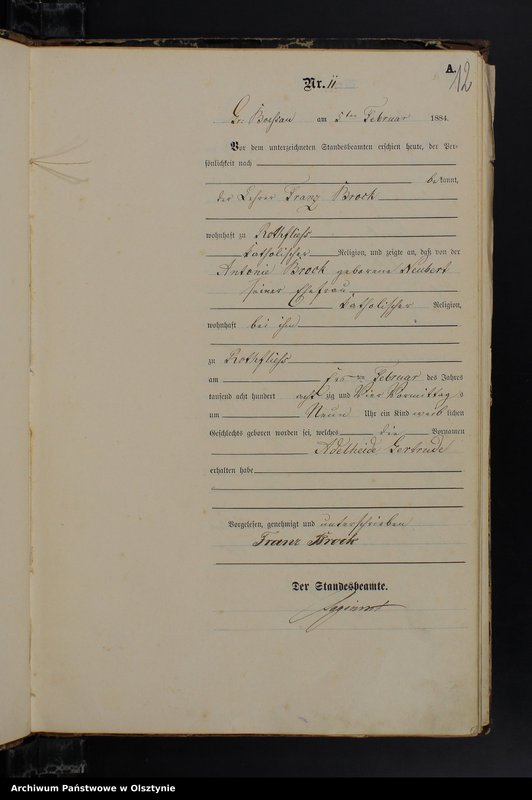 A.
12
Nr. 11
Gr. Boessau am 5ten Februar 1884.
Vor dem unterzeichneten Standesbeamten erschien heute, der Per-
sönlichkeit nach
bekannt,
der Lehrer Franz Brock
wohnhaft zu Rothfließ
katholischer Religion, und zeigte an, daß von der
Antonie Brock geborene Neubert
seiner Ehefrau
katholischer Religion,
wohnhaft bei ihm
zu Rothfließ
am Februar des Jahres
tausend acht hundert achtzig und Vier Vormittags
um Neun Uhr ein Kind weiblichen
Geschlechts geboren worden sei, welches die Vornamen
Adelheide Gertrude
erhalten habe
Vorgelesen, genehmigt und unterschrieben
Franz Brock
Der Standesbeamte.
Archiwum Państwowe w Olsztynie